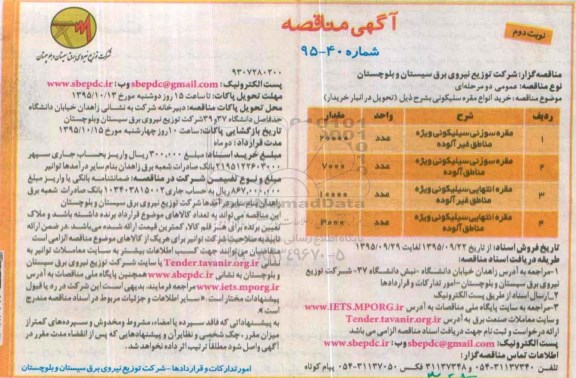 آگهی مناقصه
نوبت دوم
شماره ۴۰-۹۵
شرکت توزیع نیروی برق سیستان و بلوچستان
مناقصه‌گزار: شرکت توزیع نیروی برق سیستان و بلوچستان
نوع مناقصه: عمومی دو مرحله‌ای
موضوع مناقصه: خرید انواع مقره سیلیکونی بشرح ذیل (تحویل در انبار خریدار)
ردیف شرح واحد مقدار
۱ مقره سوزنی سیلیکونی ویژه مناطق غیر آلوده عدد
۲ مقره سوزنی سیلیکونی ویژه مناطق آلوده عدد ۷۰۰۰
۳ مقره انتهایی سیلیکونی ویژه مناطق غیر آلوده عدد ۱۰۰۰۰
۴ مقره انتهایی سیلیکونی ویژه مناطق آلوده عدد
تاریخ فروش اسناد: از تاریخ ۱۳۹۵/۰۹/۲۲ لغایت ۱۳۹۵/۰۹/۲۹
طریقه دریافت اسناد مناقصه:
۱-مراجعه به آدرس زاهدان خیابان دانشگاه -نبش دانشگاه ۳۷- شرکت توزیع
نیروی برق سیستان و بلوچستان -امور تدارکات و قراردادها
۲-ارسال اسناد از طریق پست الکترونیک
۳-مراجعه به سایت پایگاه ملی مناقصات به آدرس www.IETS.MPORG.ir
وسایت معاملات صنعت برق به آدرس Tender.tavanir.org.ir
ارائه درخواست و ثبت نام جهت دریافت اسناد مناقصه الزامی می‌باشد
پست الکترونیکی: sbepdc@gmail.com وب: www.sbepdc.ir
اطلاعات تماس مناقصه‌گزار:
تلفن: ۳۱۱۳۷۳۴۰-۰۵۴ و ۳۱۱۳۷۳۴۸ فکس: ۳۱۱۳۷۰۵۰-۰۵۴ پیام کوتاه
۹۳۰۷۲۸۰۲۰۰
پست الکترونیک: sbepdc@gmail.com وب: www.sbepdc.ir
مهلت تحویل پاکات: تا ساعت ۱۵ روز دوشنبه مورخ ۱۳۹۵/۱۰/۱۳
محل تحویل پاکات مناقصه: دبیرخانه شرکت به نشانی زاهدان خیابان دانشگاه
حدفاصل دانشگاه ۳۷ و ۳۹ شرکت توزیع نیروی برق سیستان و بلوچستان
تاریخ بازگشایی پاکات: ساعت ۱۰ روز چهارشنبه مورخ ۱۳۹۵/۱۰/۱۵
مدت قرارداد: دو ماه
مبلغ خرید اسناد: ۳۰۰,۰۰۰ ریال واریز بحساب جاری سپهر
بانک صادرات شعبه برق زاهدان بنام سایر درآمدها توانیر
مبلغ و نوع تضمین شرکت در مناقصه: ضمانتنامه بانکی یا واریز مبلغ
۸۶۷,۰۰۰,۰۰۰ ریال به حساب جاری ۰۱۰۳۴۰۳۸۱۵۰۰۲ بانک صادرات شعبه برق
زاهدان بنام سایر درآمدها شرکت توزیع نیروی برق سیستان و بلوچستان
این مناقصه می‌تواند به تعداد کالاهای موضوع قرارداد برنده داشته باشد و ملاک
تعیین برنده برای هر قلم کالا، کمترین قیمت ارائه شده می‌باشد. در ضمن ارائه
تاییدیه صلاحیت شرکت توانیر برای هریک از کالاهای موضوع مناقصه الزامی است
متقاضیان می‌توانند جهت کسب اطلاعات بیشتر به سایت معاملات توانیر به
نشانی Tender.tavanir.org.ir یا سایت شرکت توزیع نیروی برق سیستان
و بلوچستان به نشانی www.sbepdc.ir همچنین پایگاه ملی مناقصات به آدرس
www.iets.mporg.ir مراجعه فرمایند. بدیهی است این شرکت در رد یا قبول
پیشنهادات مختار است. «سایر اطلاعات و جزئیات مربوط در اسناد مناقصه مندرج
است.»
به پیشنهاداتی که فاقد سپرده یا امضاء، مشروط و مخدوش و سپرده‌های کمتر از
میزان مقرر، چک شخصی و نظایر آن و پیشنهادهایی که پس از انقضاء مدت مقرر در
آگهی واصل شود مطلقا ترتیب اثر داده نخواهد شد.
امور تدارکات و قراردادها - شرکت توزیع نیروی برق سیستان و بلوچستان